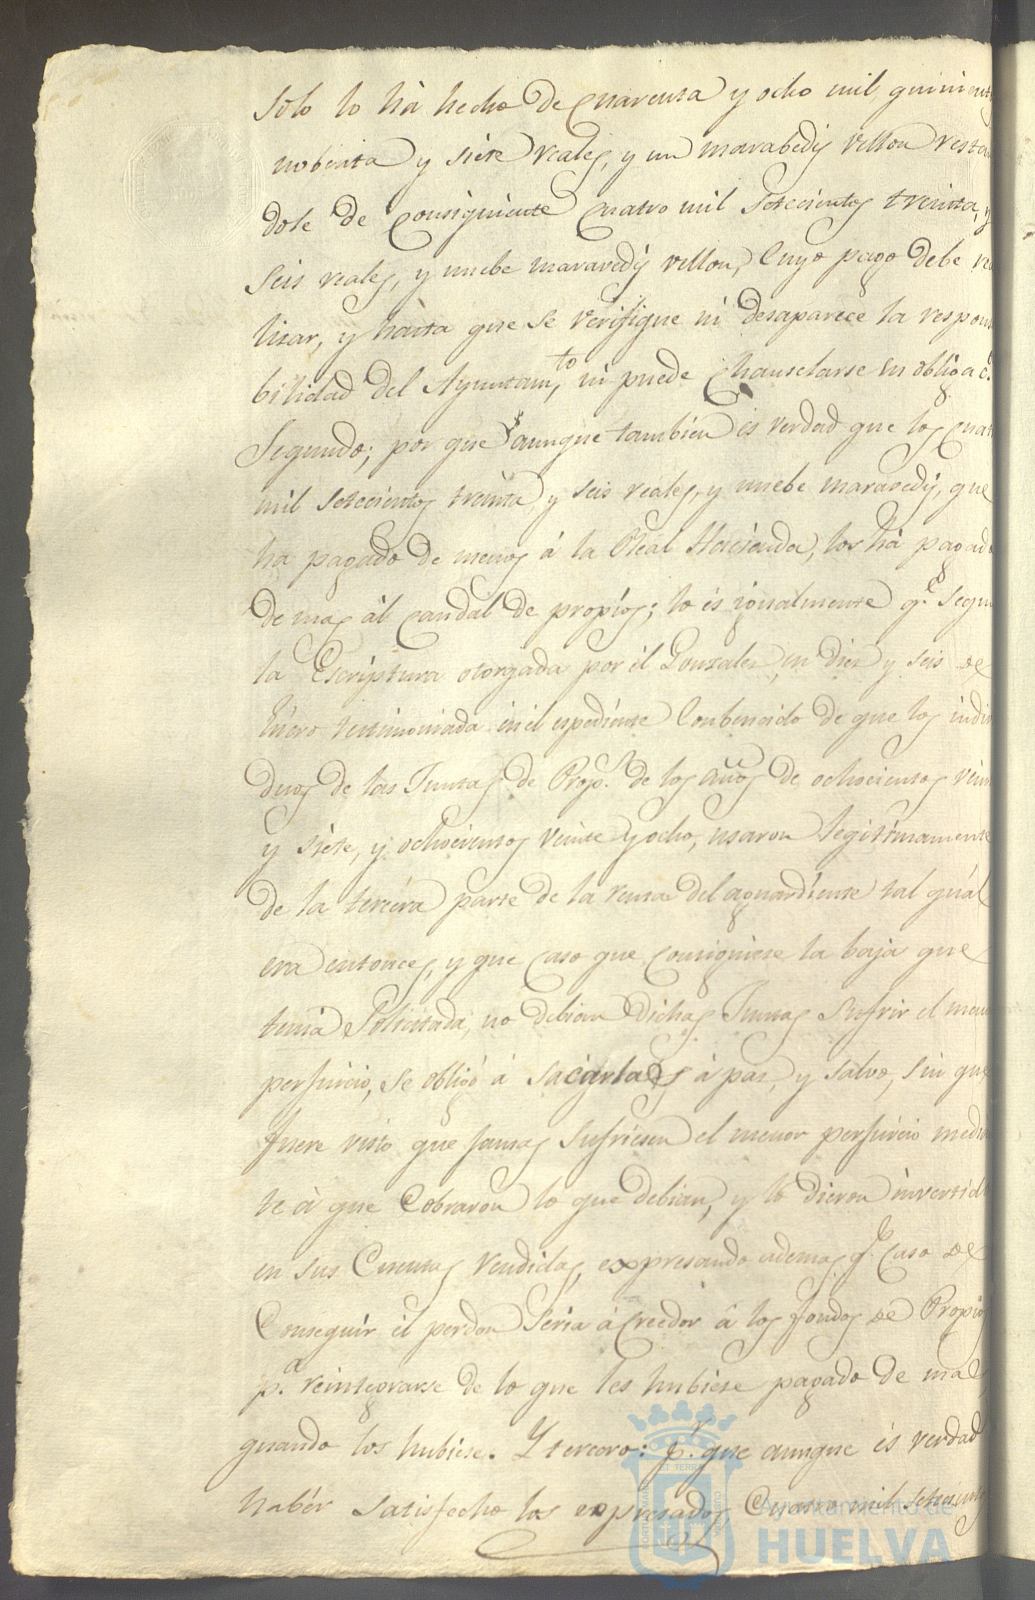 Solo lo há hecho de quarenta y ocho mil quinient
nobenta y siete reales, y un marabedy vellon resta
dole de consiguiente quatro mil setecientos treinta, y
seis reales, y nuebe maravedy vellon, Cuyo pago debe rea
lizar, y hasta que se verifique ni desaparece la respon
bilidad del Ayuntam.to, ni puede Chanselarse su obligac.
Segundo; por que aunque tambien és verdad que los quat
mil setecientos treinta, y seis reales, y nuebe maravedy, que
ha pagado de menos á la Real Hacienda, los há pagad
de mas ál Caudal de propios; lo és igualmente q.e Segun
la Escriptura otorgada por él Gonzales, en diez y seis de
Enero testimoniada en él espediente Conbencido de que los indivi
duos de las Juntas de Prop.s de los años de ochocientos vein
y siete, y ochocientos veinte y ocho, usaron legitimamente
de la tercera parte de la renta del aguardiente tal quál
era entonces, y que caso que consiguiese la baja que
tenia Solicitada, no debian dichas Juntas Sufrir el men
perjuicio, se obligó á sacarlas á paz, y salvo, sin que
fuere visto que Juntas Sufriesen el menor perjuicio media
te á que Cobraron lo que debian, y lo dieron invertid
en sus Cuentas rendidas, expresando ademas q.e Caso de
Conseguir él perdon Seria acreedor á los fondos de Propios
p.a reintegrarse de lo que les hubiese pagado de mas,
quando los hubiese. Y tercero: p.r que aunque és verdad
habér Satisfecho los expresados Cuatro mil setecient
Ayuntamiento de
HUELVA